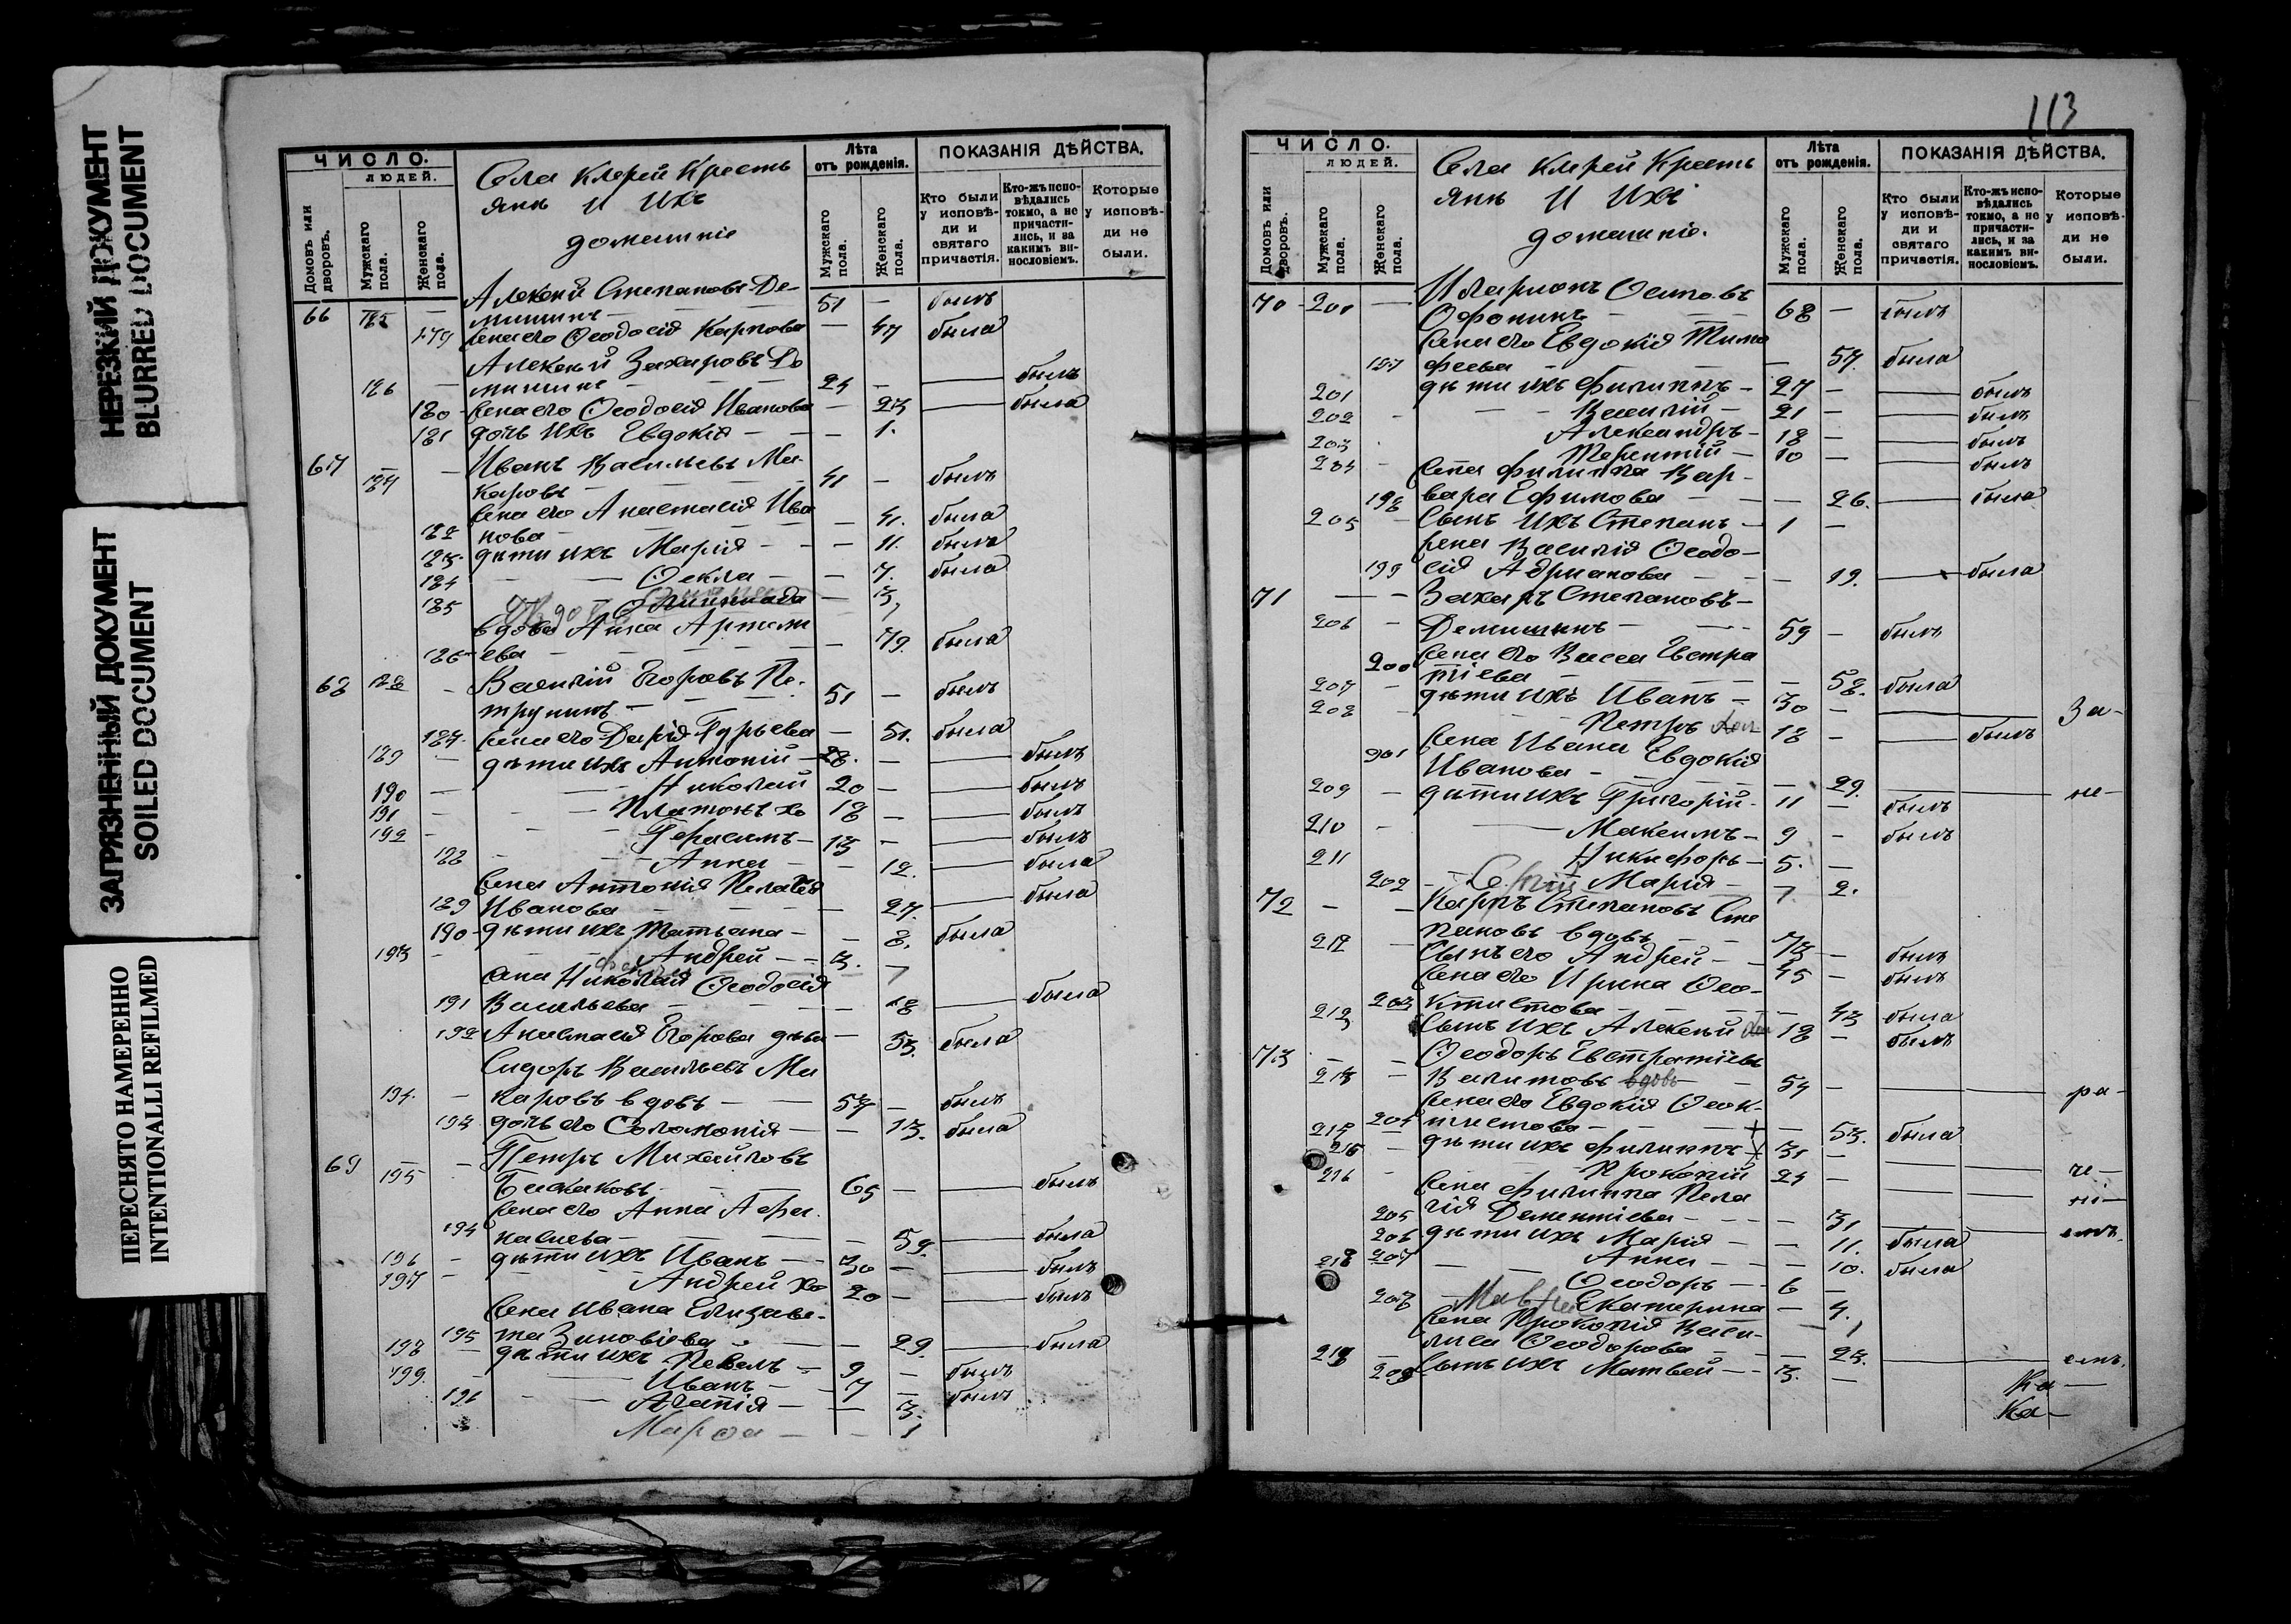 НЕРЕЗКИЙ ДОКУМЕНТ
BLURRED DOCUMENT
ЗАГРЯЗНЕННЫЙ ДОКУМЕНТ
SOILED DOCUMENT
ПЕРЕСНЯТО НАМЕРЕННО
INTENTIONALLI REFILMED
ЧИСЛО.
ЛЮДЕЙ.
Домовъ или дворовъ.
Мужскаго пола.
Женскаго пола.
Села Клерей Кресть
янъ и ихъ
домашніе
Лѣта
отъ рожденія.
Мужскаго пола.
Женскаго пола.
ПОКАЗАНІЯ ДѢЙСТВА.
Кто были у исповѣди и святаго причастія.
Кто-жъ исповѣдались токмо, а не причастились, и за какимъ винословіемъ.
Которые у исповѣди не были.
Алексѣй Степановъ Де-
66 185 — мишинъ — 51 — былъ
179 жена его Ѳеодосія Карпова — 47 была
Алексѣй Захаровъ Де
186 — мишинъ — 24 — — былъ
180 жена его Ѳеодосія Иванова — 23 — была
181 дочь ихъ Евдокія — — 1.
67 Иванъ Васильевъ Ма-
187 каровъ — 41 — былъ
жена его Анастасія Ива
182 нова — — 41. была
183. дѣти ихъ Марія — — 11. была
184 — Ѳекла — — 7. была
185 — Олимпіада — 3,
вдова Анна Артем
186 ева — — 79. была
68 188 — Василій Егоровъ Пе-
трунинъ — 51 — былъ
187. жена его Дарія Гурьева — 51. была
189 — дѣти ихъ Антоній — 28. — — былъ
190 — Николай 20 — — былъ
191 — Платонъ хо 18 — — былъ
192 — Герасимъ — 13 — — былъ
188 — Анна — 12. — была
жена Антонія Пелагія
189 Иванова — — 27. — была
190 — дѣти ихъ Татьяна — — 8. была
193 — Андрей — 3. —
жена Николая Ѳеодосія
191 Васильева — — 18 — была
192 Анастасія Егорова дѣва — 53. была
Сидоръ Васильевъ Ма
194. — каровъ вдовъ — 57 — былъ
193. дочь его Соломонія — — 13. была
69 — Петръ Михайловъ
195 Бисаковъ — 65 — — былъ
жена его Анна Афа-
194 насиева — — 59. — была
196 — дѣти ихъ Иванъ — 30 — — былъ
197 — Андрей хо 20 — — былъ
жена Ивана Елизаве-
195 та Зиновіева — — 29. — была
198 — дѣти ихъ Павелъ — 9 — былъ
199. — Иванъ — 7 — былъ
196 — Агапія — — 3.
Марѳа — 1
113
ЧИСЛО.
ЛЮДЕЙ.
Домовъ или дворовъ.
Мужскаго пола.
Женскаго пола.
Села Клерей Кресть
янъ И Ихъ
домашніе.
Лѣта
отъ рожденія.
Мужскаго пола.
Женскаго пола.
ПОКАЗАНІЯ ДѢЙСТВА.
Кто были у исповѣди и святаго причастія.
Кто-жъ исповѣдались токмо, а не причастились, и за какимъ винословіемъ.
Которые у исповѣди не были.
70 200 — Иларионъ Осиповъ
Офонинъ — 68 — былъ
жена его Евдокія Тимо
197 феева — 57. была
201 дѣти ихъ Филиппъ — 27 — — былъ
202 — Василій — 21 — — былъ
203 Александръ — 18 — — былъ
204 — Терентій — 10 — — былъ
жена Филиппа Вар-
198 вара Ефимова — — 26. — была
205 — сынъ ихъ Степанъ — 1 —
жена Василія Ѳеодо-
199 сія Адрианова — — 19. — была
71 — Захаръ Степановъ —
206 — Демишинъ — 59 — былъ
жена его Васса Евстра
200 тіева — — 58. была
207 — дѣти ихъ Иванъ — 30 — — За-
208 — Петръ хол 18 — — былъ
жена Ивана Евдокія
201 Иванова — — 29. — не-
209 — дѣти ихъ Григорій — 11 — былъ
210 — Максимъ — 9 — былъ
211 Никифоръ — 5. —
202 — Сергій Марія — 2.
72 — Карпъ Степановъ Сте
212 — пановъ вдовъ — 73 — былъ
сынъ его Андрей — 45 — былъ
жена его Ирина Ѳео-
203 ктистова — — 43 была
213 сынъ ихъ Алексѣй хол 18 — былъ
73 — Ѳеодоръ Евстратіевъ
214 — Валитовъ вдовъ — 54 — — ра-
жена его Евдокія Ѳеок-
204 тистова — — 53. была
215 — дѣти ихъ Филиппъ — 31 — — че-
216 — Прокопій 24 — — ні-
жена Филиппа Пела
205 гія Дементіева — — 31 — емъ.
206 дѣти ихъ Марія — — 11. была
207 — Анна — — 10. была
218 Ѳеодоръ — 6 —
208 — Мавра Екатерина — 4.
жена Прокопія Васи-
лиса Ѳеодорова — — 23. — емъ.
209 сынъ ихъ Матвей — 3. —
Ка —
Ка —